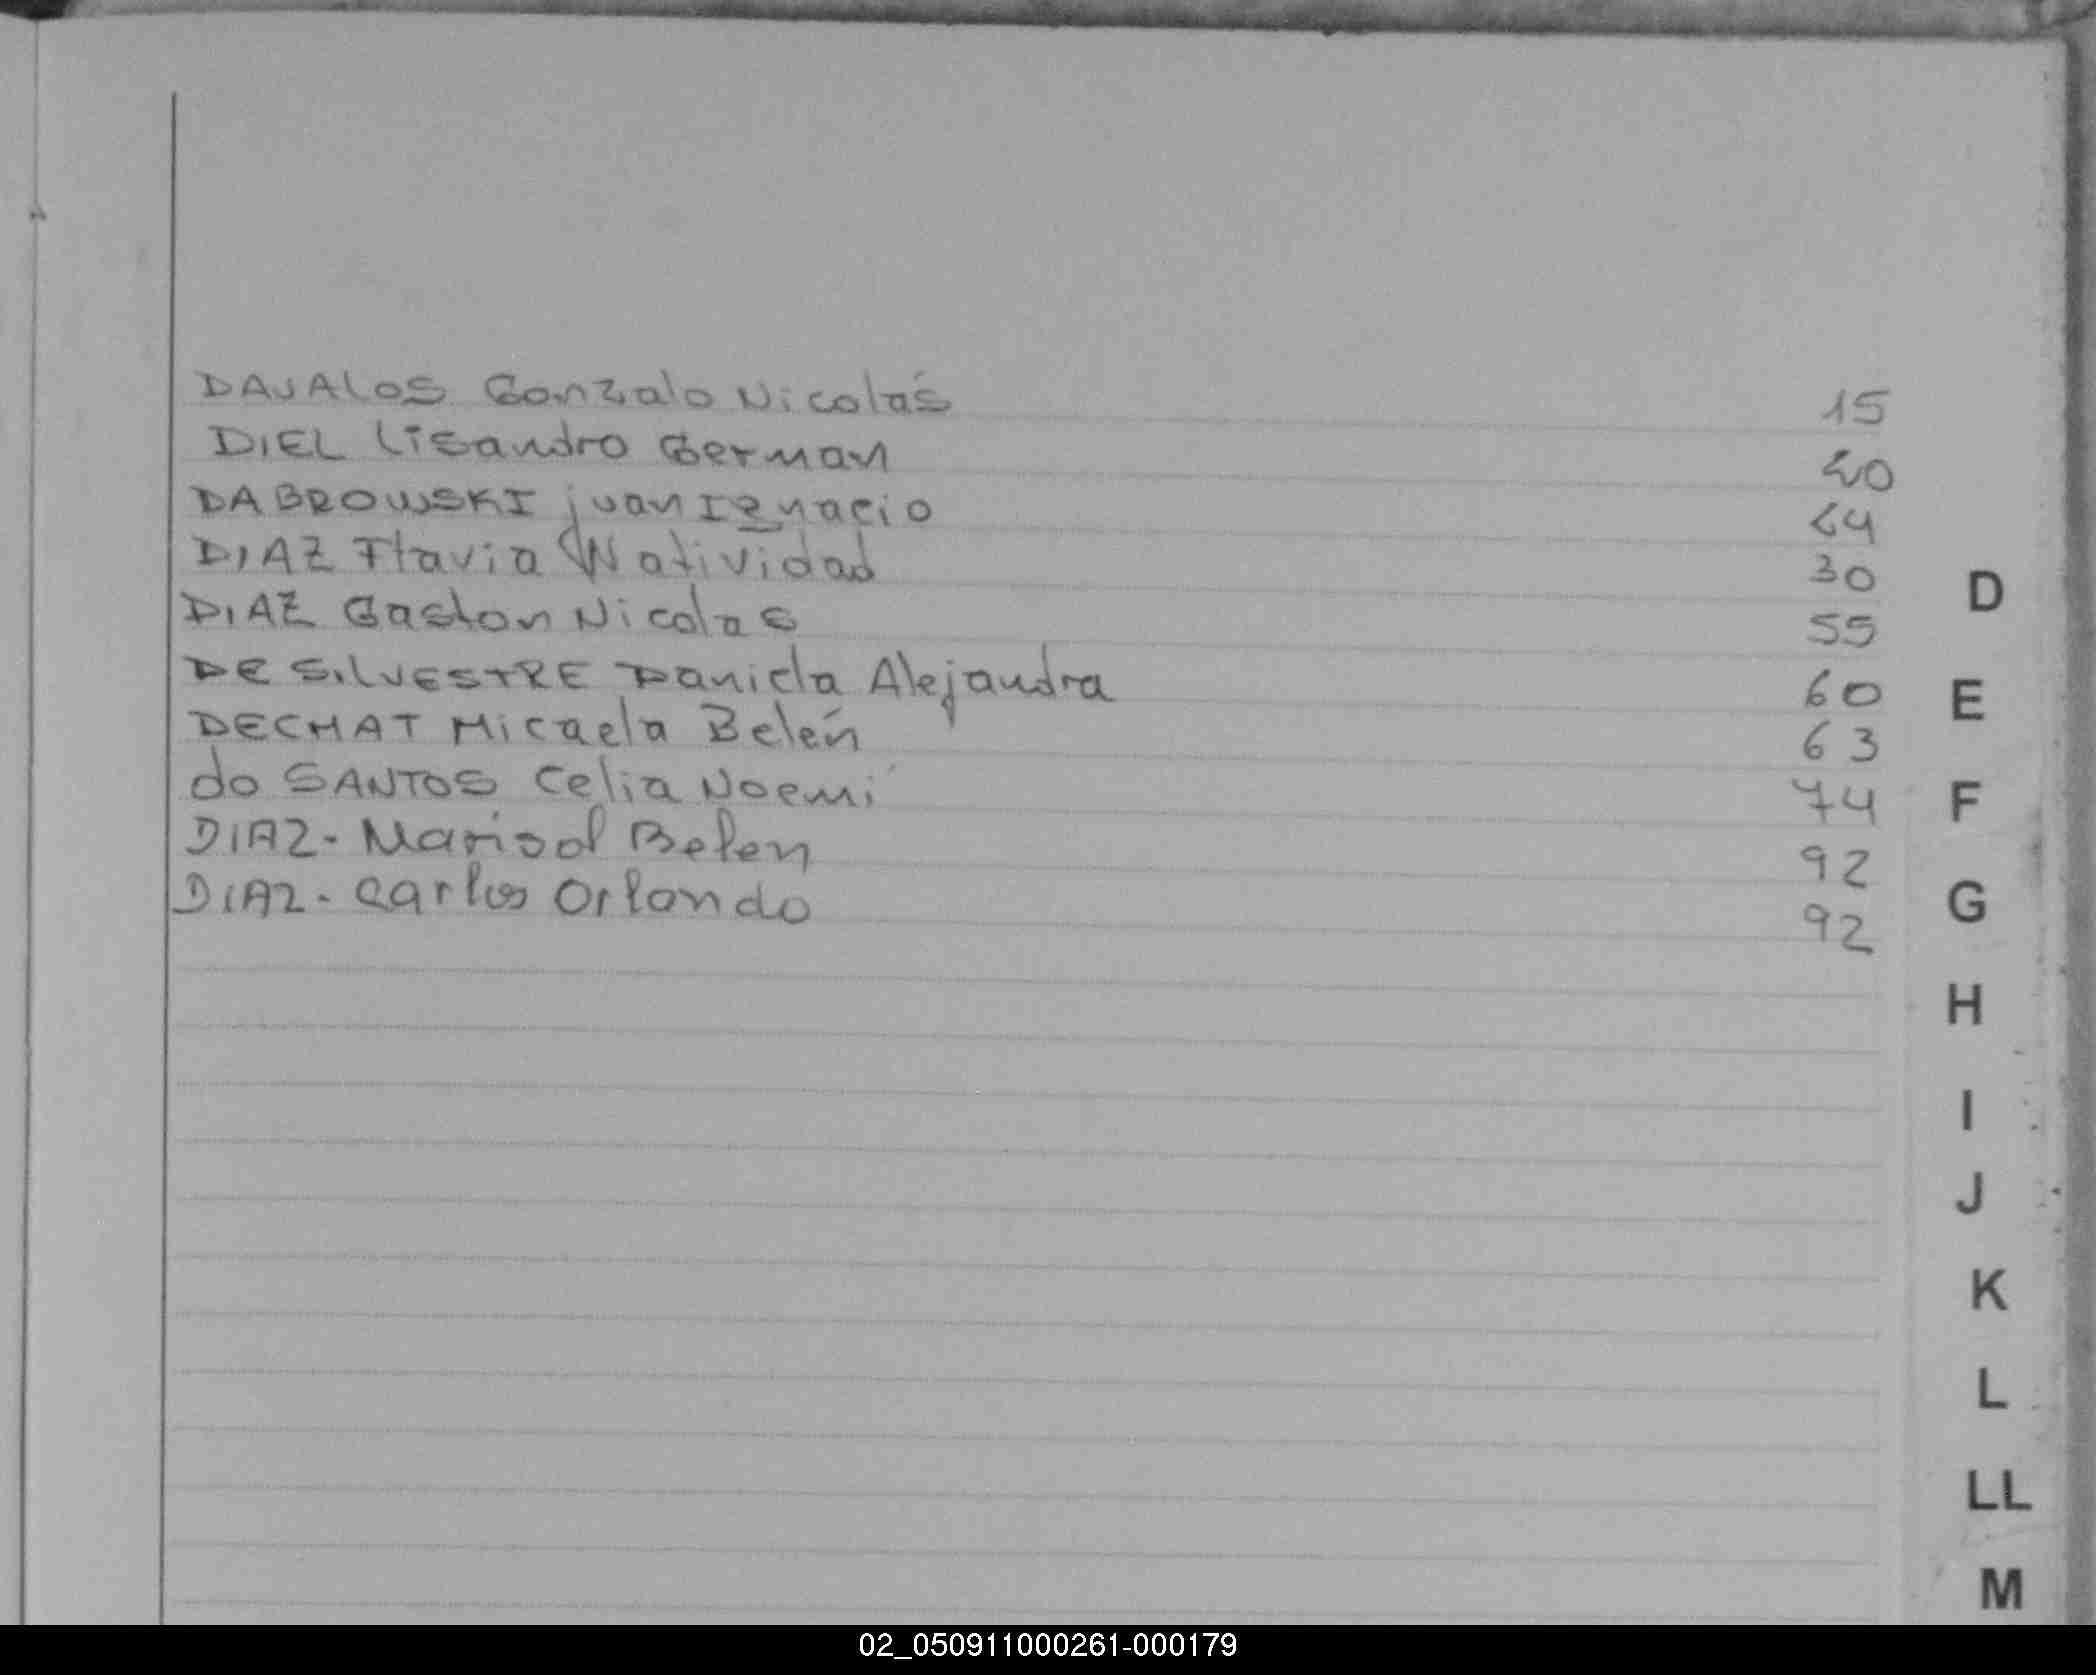 DAVALOS Gonzalo Nicolás 15
DIEL Lisandro German 20
DABROWSKI juan Ignacio 24
DIAZ Flavia Natividad 30
DIAZ Gaston Nicolas 55
DE SILVESTRE Daniela Alejandra 60
DECHAT Micaela Belén 63
do SANTOS Celia Noemí 74
DIAZ - Marisol Belen 92
DIAZ - Carlos Orlando 92
D
E
F
G
H
I
J
K
L
LL
M
02_050911000261-000179